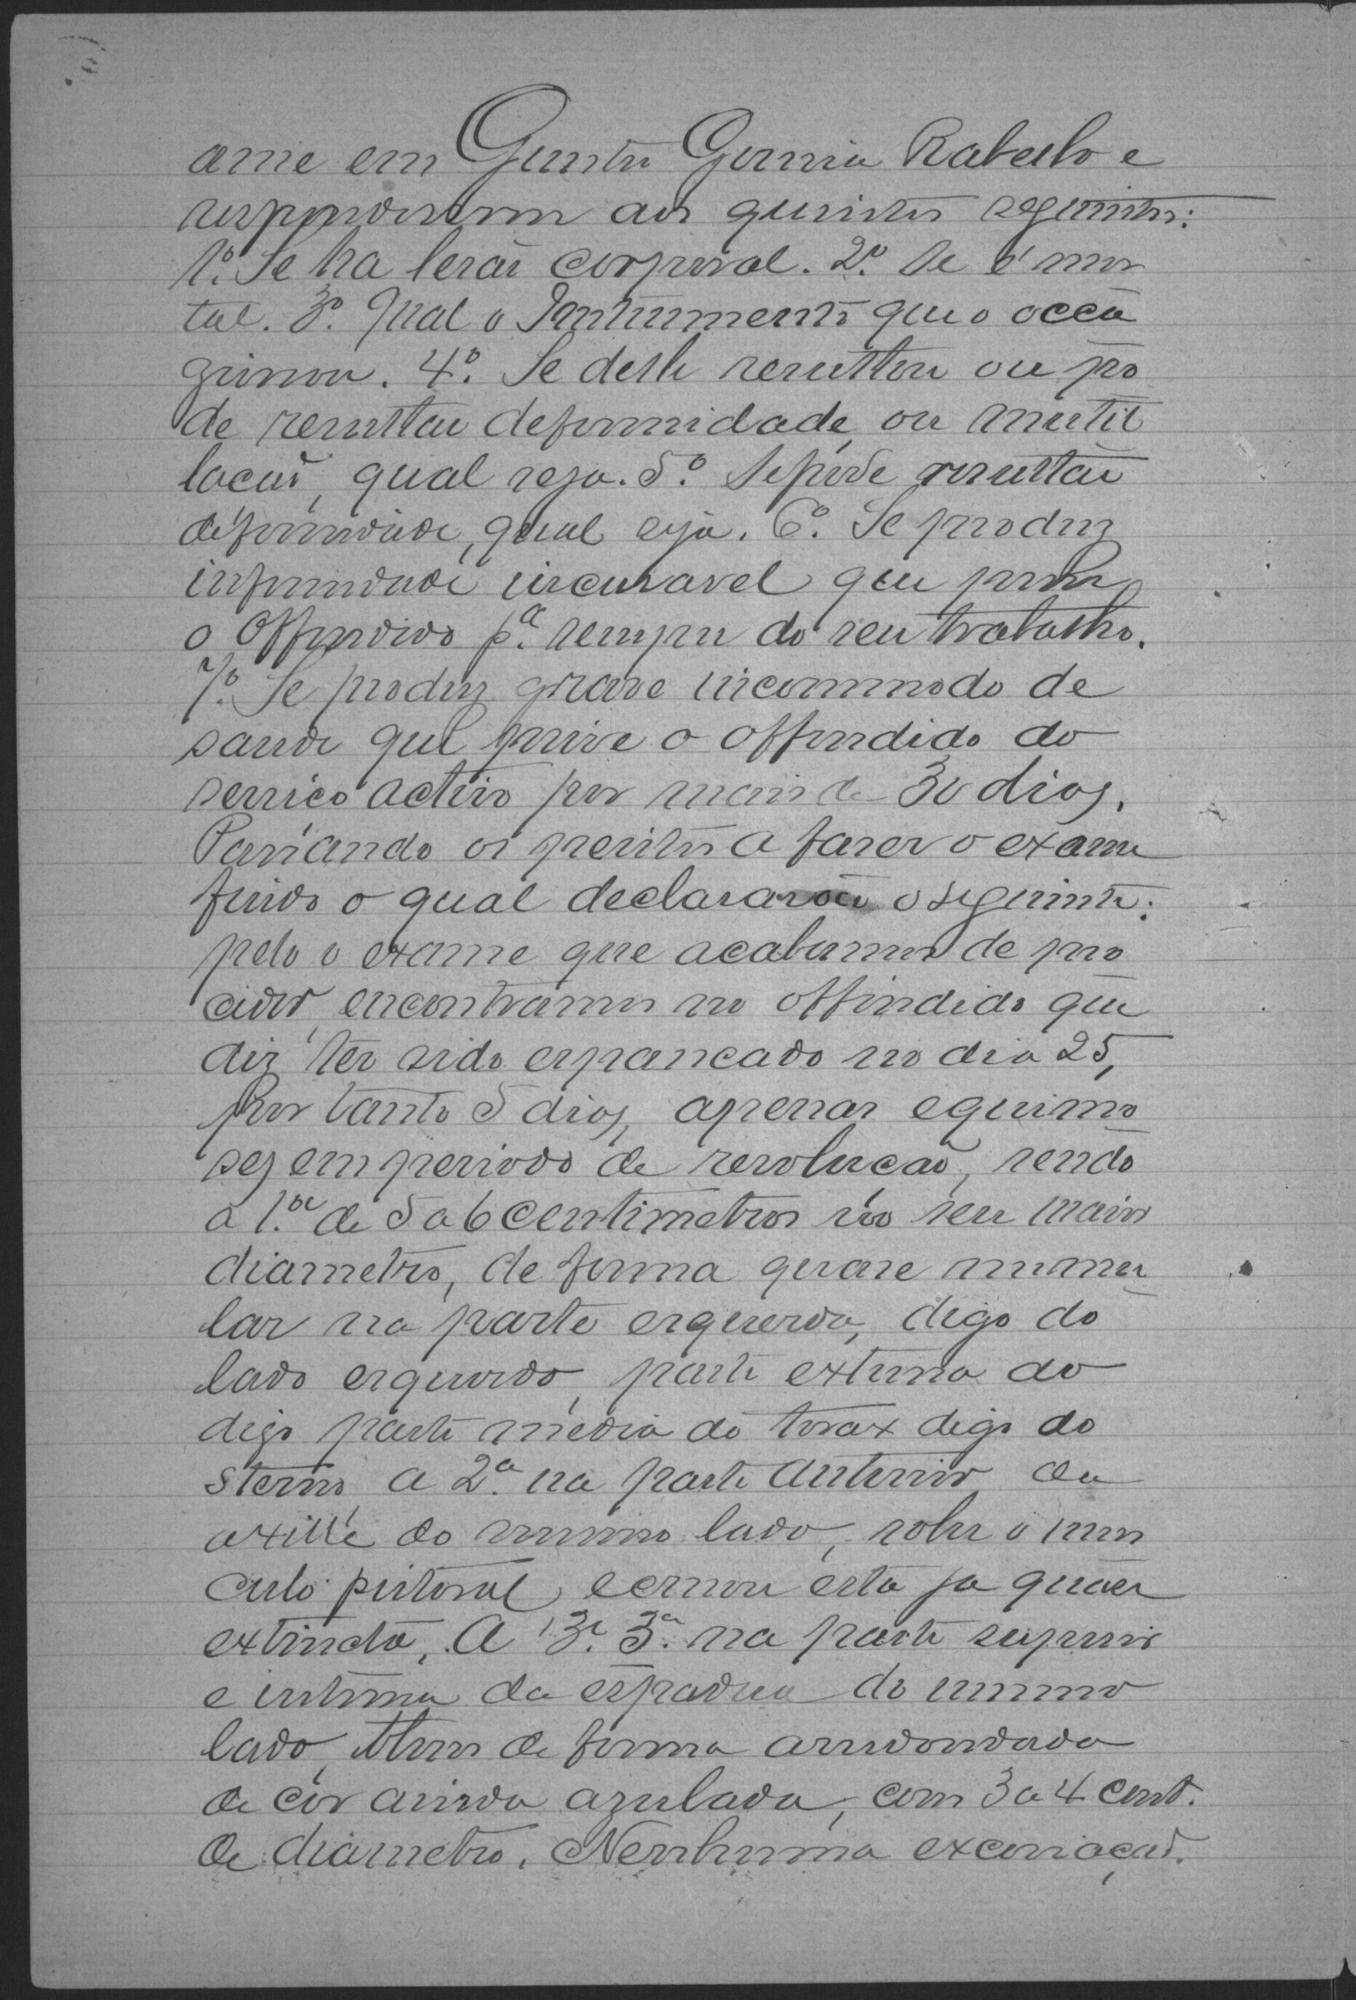 ame em Garcia Rabello e
responderem aos quesitos seguintes:
1º. Se ha lesão corporal. 2º. Se é mor
tal. 3º. Qual o Instrumento que o occa
zionou. 4º. Se delle resultou ou po
de resultar deformidade, ou mutil
lacao, qual seja. 5º Se póde resultar
deformidade, qual seja. 6º. Se produz
infirmidade incuravel que prive
o Offendido pª. sempre do seu trabalho.
7º. Se produz grave incommodo de
saude que prive o offendido do
serviço activo por mais de 30 dias.
Passando os peritos a fazer o exame
findo o qual declararão o seguinte:
pelo o exame que acabamos de pro
ceder, encontramos no offendido que
diz ter sido espancado no dia 25,
por tanto 5 dias, apenas equimo
ses em periodo de resolucao, sendo
a 1.ª de 5 a 6 centimetros no seu maior
diametro, de forma quase numu
lar na parte esquerda, digo do
lado esquerdo, parte externa do
digo parte media do torax digo do
sterno, a 2ª. na parte anterior da
axille do mesmo lado, sobre o mus
culo pectoral, e esta ja quase
extincta. A 3ª. 3ª. na parte superior
e interna da espadua do mesmo
lado, de forma arredondada
de côr ainda azulada, com 3 a 4 cent.
de diametro. Nenhuma excoriação.